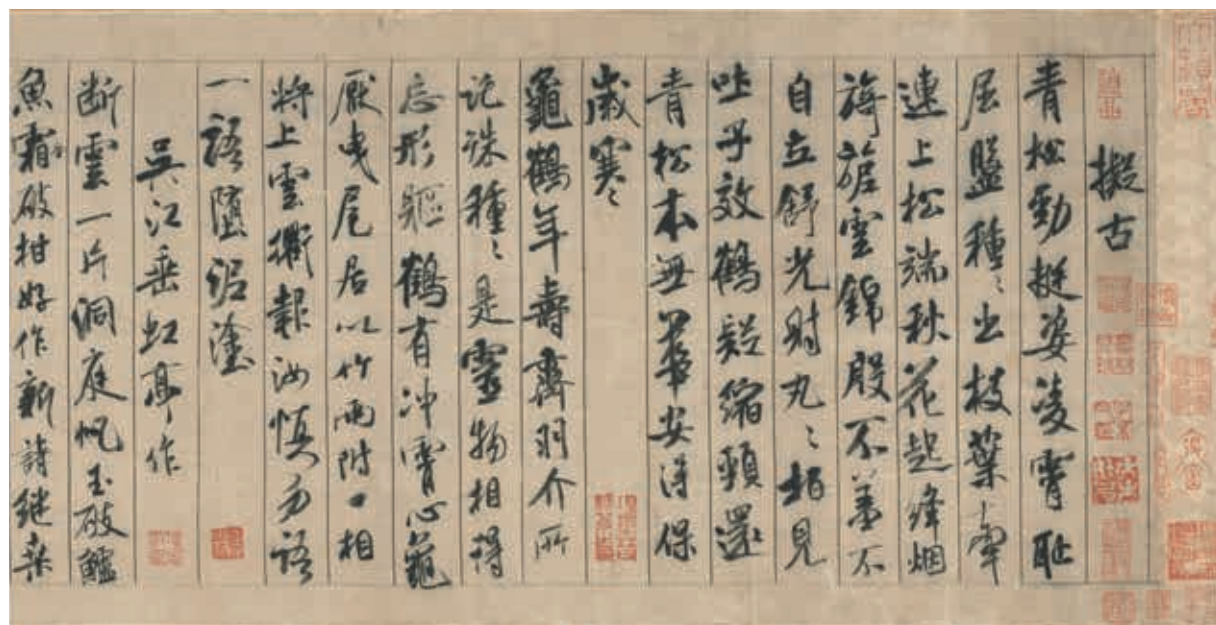 擬古
青松勁挺姿凌霄恥
屈盤種々出枝葉牽
連上松端秋花起絳烟
旖旎雲錦殷不羞不
自立舒光射丸々柏見
吐子效鶴疑縮頸還
青松本無華安得保
歲寒々
龜鶴年壽齊羽介所
託殊種々是靈物相得
忘形軀鶴有冲霄心龜
厭曳尾居以竹兩附口相
將上雲衢報汝慎勿語
一語墮泥塗
吳江垂虹亭作
断雲一片洞庭帆玉破鱸
魚霜破柑好作新詩継桑